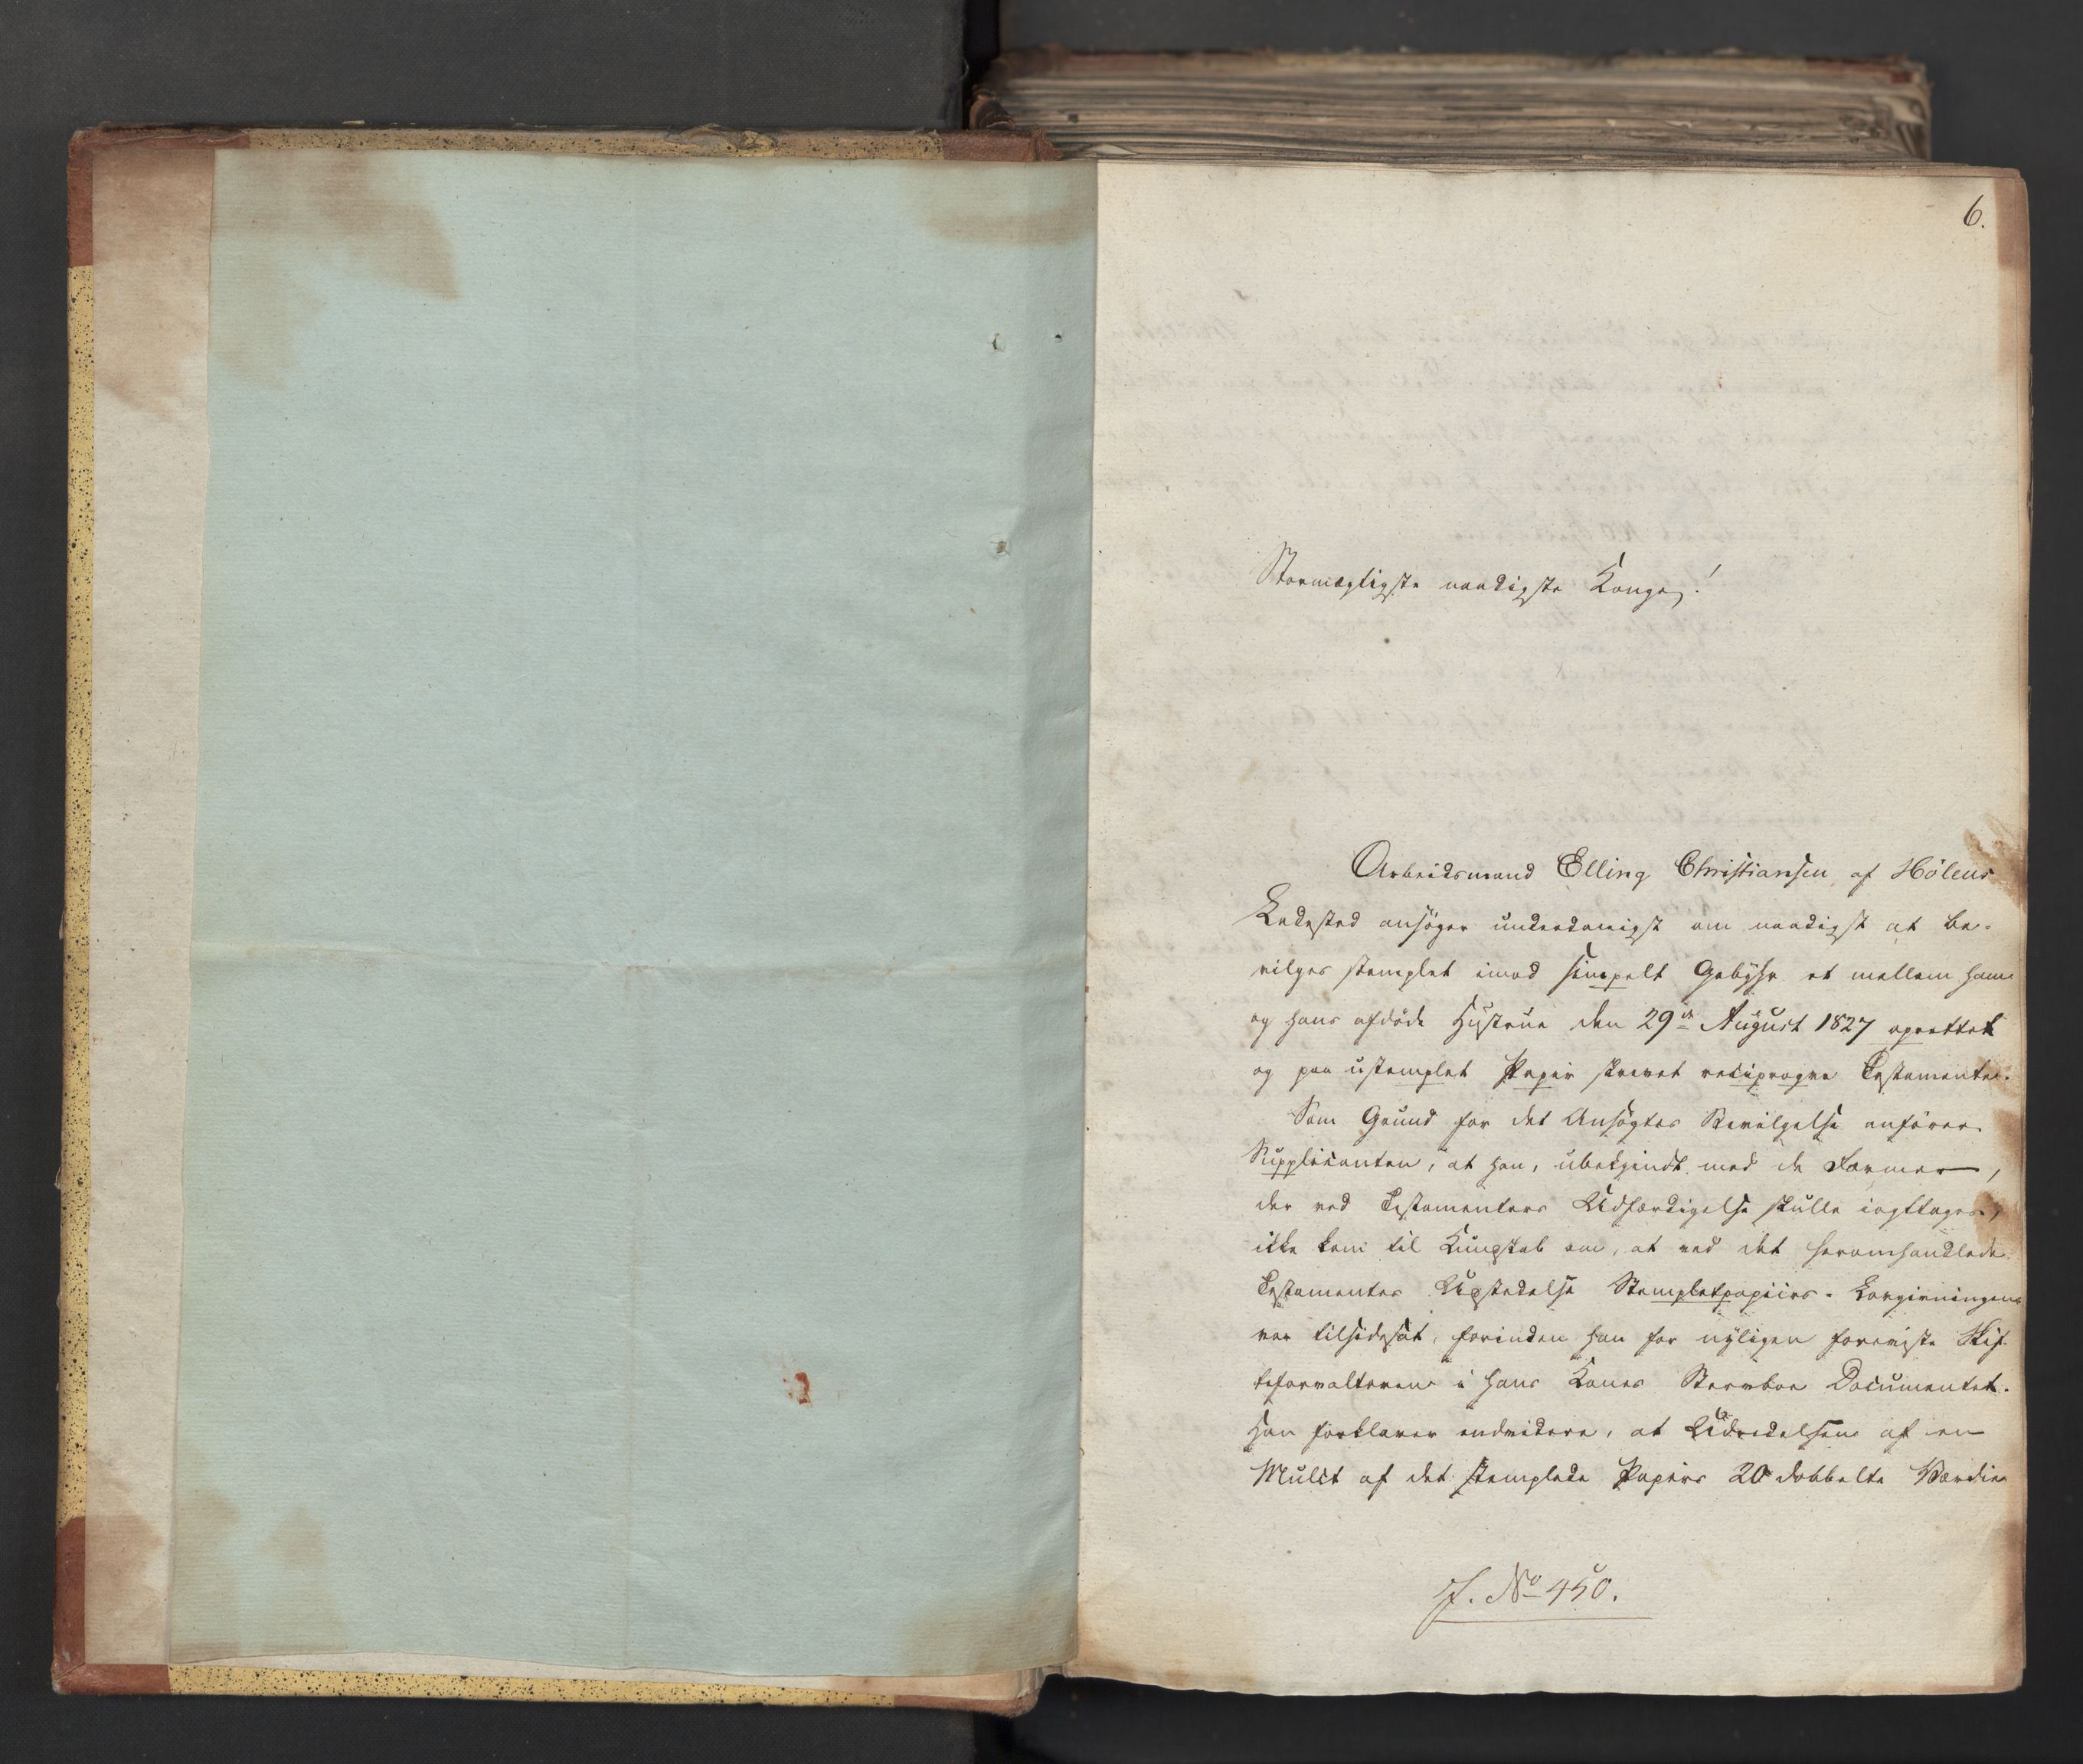 6.
Stormægtigste naadigste Konge!
Arbeidsmand Elling Christiansen af Hölens
Ladested ansöger underdanigst om naadigst at be-
vilges stemplet imod simpelt Gebyhr et mellem ham
og hans afdöde Hustrue den 29de August 1827 oprettet
og paa ustemplet Papir skrevet reciproque Testamente.
Som Grund for det Ansögtes Bevilgelse anförer
Supplicanten, at han, ubekjendt med de Former,
der ved Testamenters Udfærdigelse skulle iagttages,
ikke kom til Kundskab om, at ved det heromhandlede
Testamentes Udstedelse Stempletpapiirs-Lovgivningen
var tilsidesat, forinden han for nyligen foreviste Skif-
teforvalteren i hans Kones Stervboe Documentet.
Han forklarer endvidere, at Udredelsen af en
Mulct af det stemplede Papirs 20 dobbelte Værdie
J. No 450.